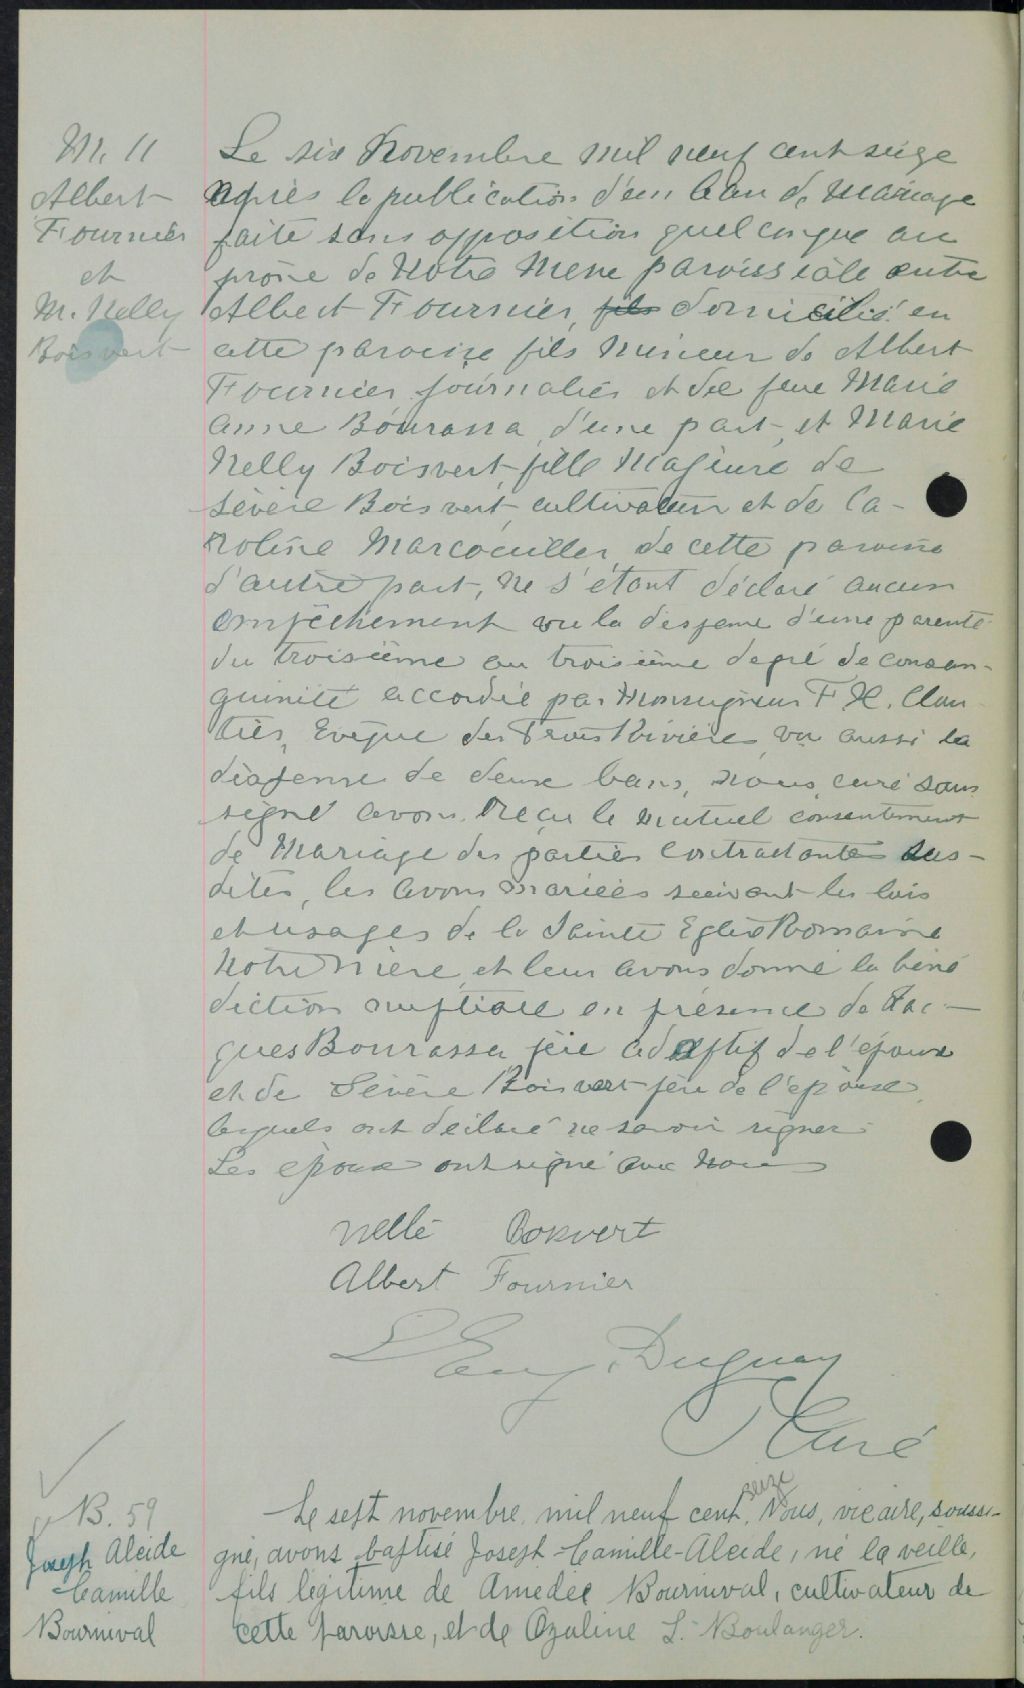 M. 11
Albert
Fournier
et
M. Nelly
Boisvert
Le six Novembre mil neuf cent seize
après la publication d'un ban de Mariage
faite sans opposition quelconque au
prône de Notre Messe paroissiale entre
Albert Fournier, fils domicilié en
cette paroisse fils mineur de Albert
Fournier journalier et de feue Marie
Anne Bourassa, d'une part, et Marie
Nelly Boisvert, fille Majeure de
Sévère Boisvert, cultivateur et de Ca-
roline Marcouiller, de cette paroisse
d'autre part, ne s'étant déclaré aucun
empêchement vu la dispense d'une parenté
du troisième au troisième degré de consan-
guinité accordée par Monseigneur F X. Clou-
tier, Evêque des Trois Rivières, vu aussi la
dispense de deux bans, nous, curé sous
signé avons reçu le mutuel consentement
de Mariage des parties contractantes sus-
dites, les avons mariées suivant les lois
et usages de la Sainte Eglise Romaine
Notre Mère, et leur avons donné la béné
diction nuptiale en présence de Jac-
ques Bourassa père adoptif de l'époux
et de Sévère Boisvert père de l'épouse,
lesquels ont déclaré ne savoir signer.
Les époux ont signé avec nous
Nelle Boisvert
Albert Fournier
L Eug. Duguay
Curé
B. 59
Joseph Alcide
Camille
Bournival
Le sept novembre mil neuf cent seize, Nous, vicaire, soussi-
gné, avons baptisé Joseph-Camille-Alcide, né la veille,
fils légitime de Amédée Bournival, cultivateur de
cette paroisse, et de Ozaline L. Boulanger.